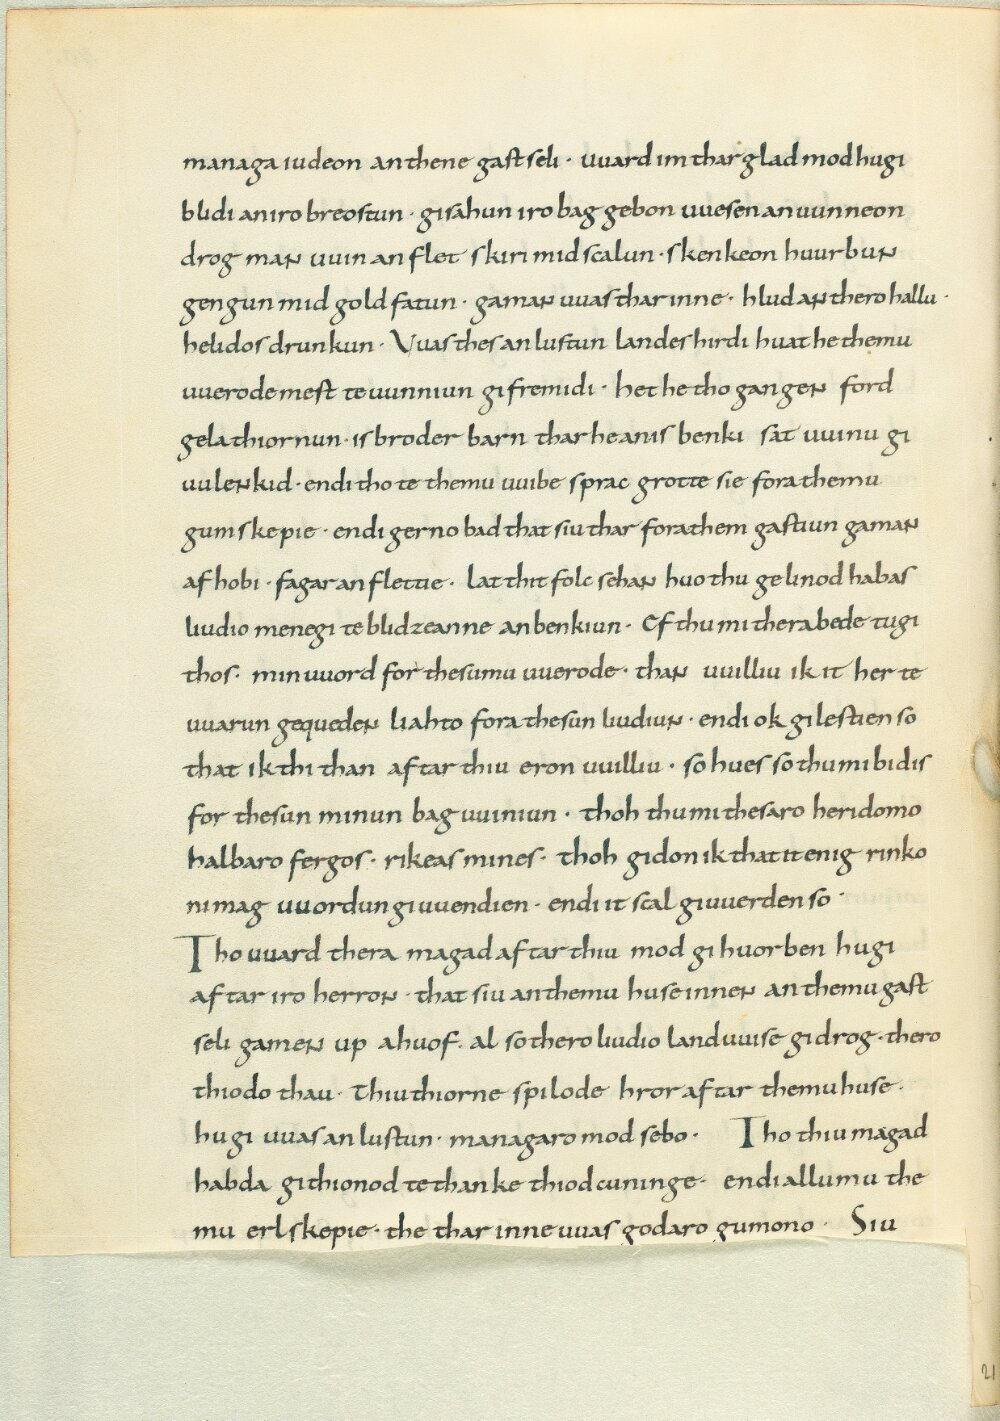 managa iudeon an thene gastseli · uuard im thar glad mod hugi
blidi an iro breostun · gisahun iro bag gebon uuesen an uunneon
drog man uuin an flet skiri mid scalun · skenkeon huurbun
gengun mid gold fatun · gaman uuas thar inne · hlud an thero hallu ·
helidos drunkun · Uuas thes an lustun landes hirdi huat he themu
uuerode mest te uunniun gifremidi · het he tho gangen ford
gela thiornun · is broder barn thar he an is benki sat uuinu gi
uulenkid · endi tho te themu uuibe sprac grotte sie fora themu
gumskepie · endi gerno bad that siu thar fora them gastiun gaman
afhobi · fagar an flettie · lat thit folc sehan huo thu gelinod habas
liudio menegi te blidzeanne an benkiun · Ef thu mi thera bede tugi
thos · min uuord for thesumu uuerode · than uuilliu ik it her te
uuarun gequeden liahto fora thesun liudiun · endi ok gilestien so
that ik thi than aftar thiu eron uuilliu · so hues so thu mi bidis
for thesun minun baguuiniun · thoh thu mi thesaro heridomo
halbaro fergos · rikeas mines · thoh gidon ik that it enig rinko
ni mag uuordun giuuendien · endi it scal giuuerden so ·
Tho uuard thera magad aftar thiu mod gihuorben hugi
aftar iro herron · that siu an themu huse innen an themu gast
seli gamen up ahuof · al so thero liudio landuuise gidrog · thero
thiodo thau · Thiu thiorne spilode hror aftar themu huse ·
hugi uuas an lustun · managaro modsebo · Tho thiu magad
habda githionod te thanke thiodcuninge · endi allumu the
mu erlskepie · the thar inne uuas godaro gumono · Siu
21